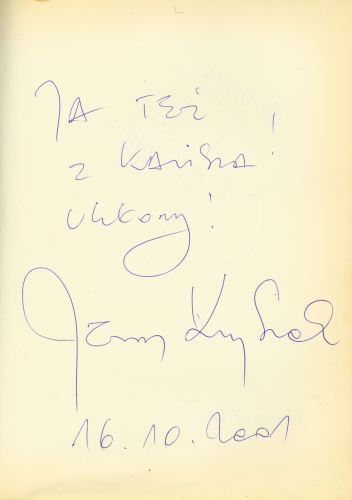 JA TEŻ
z KALISZA!
Ukłony!
Jerzy Kryszak
16.10.2001